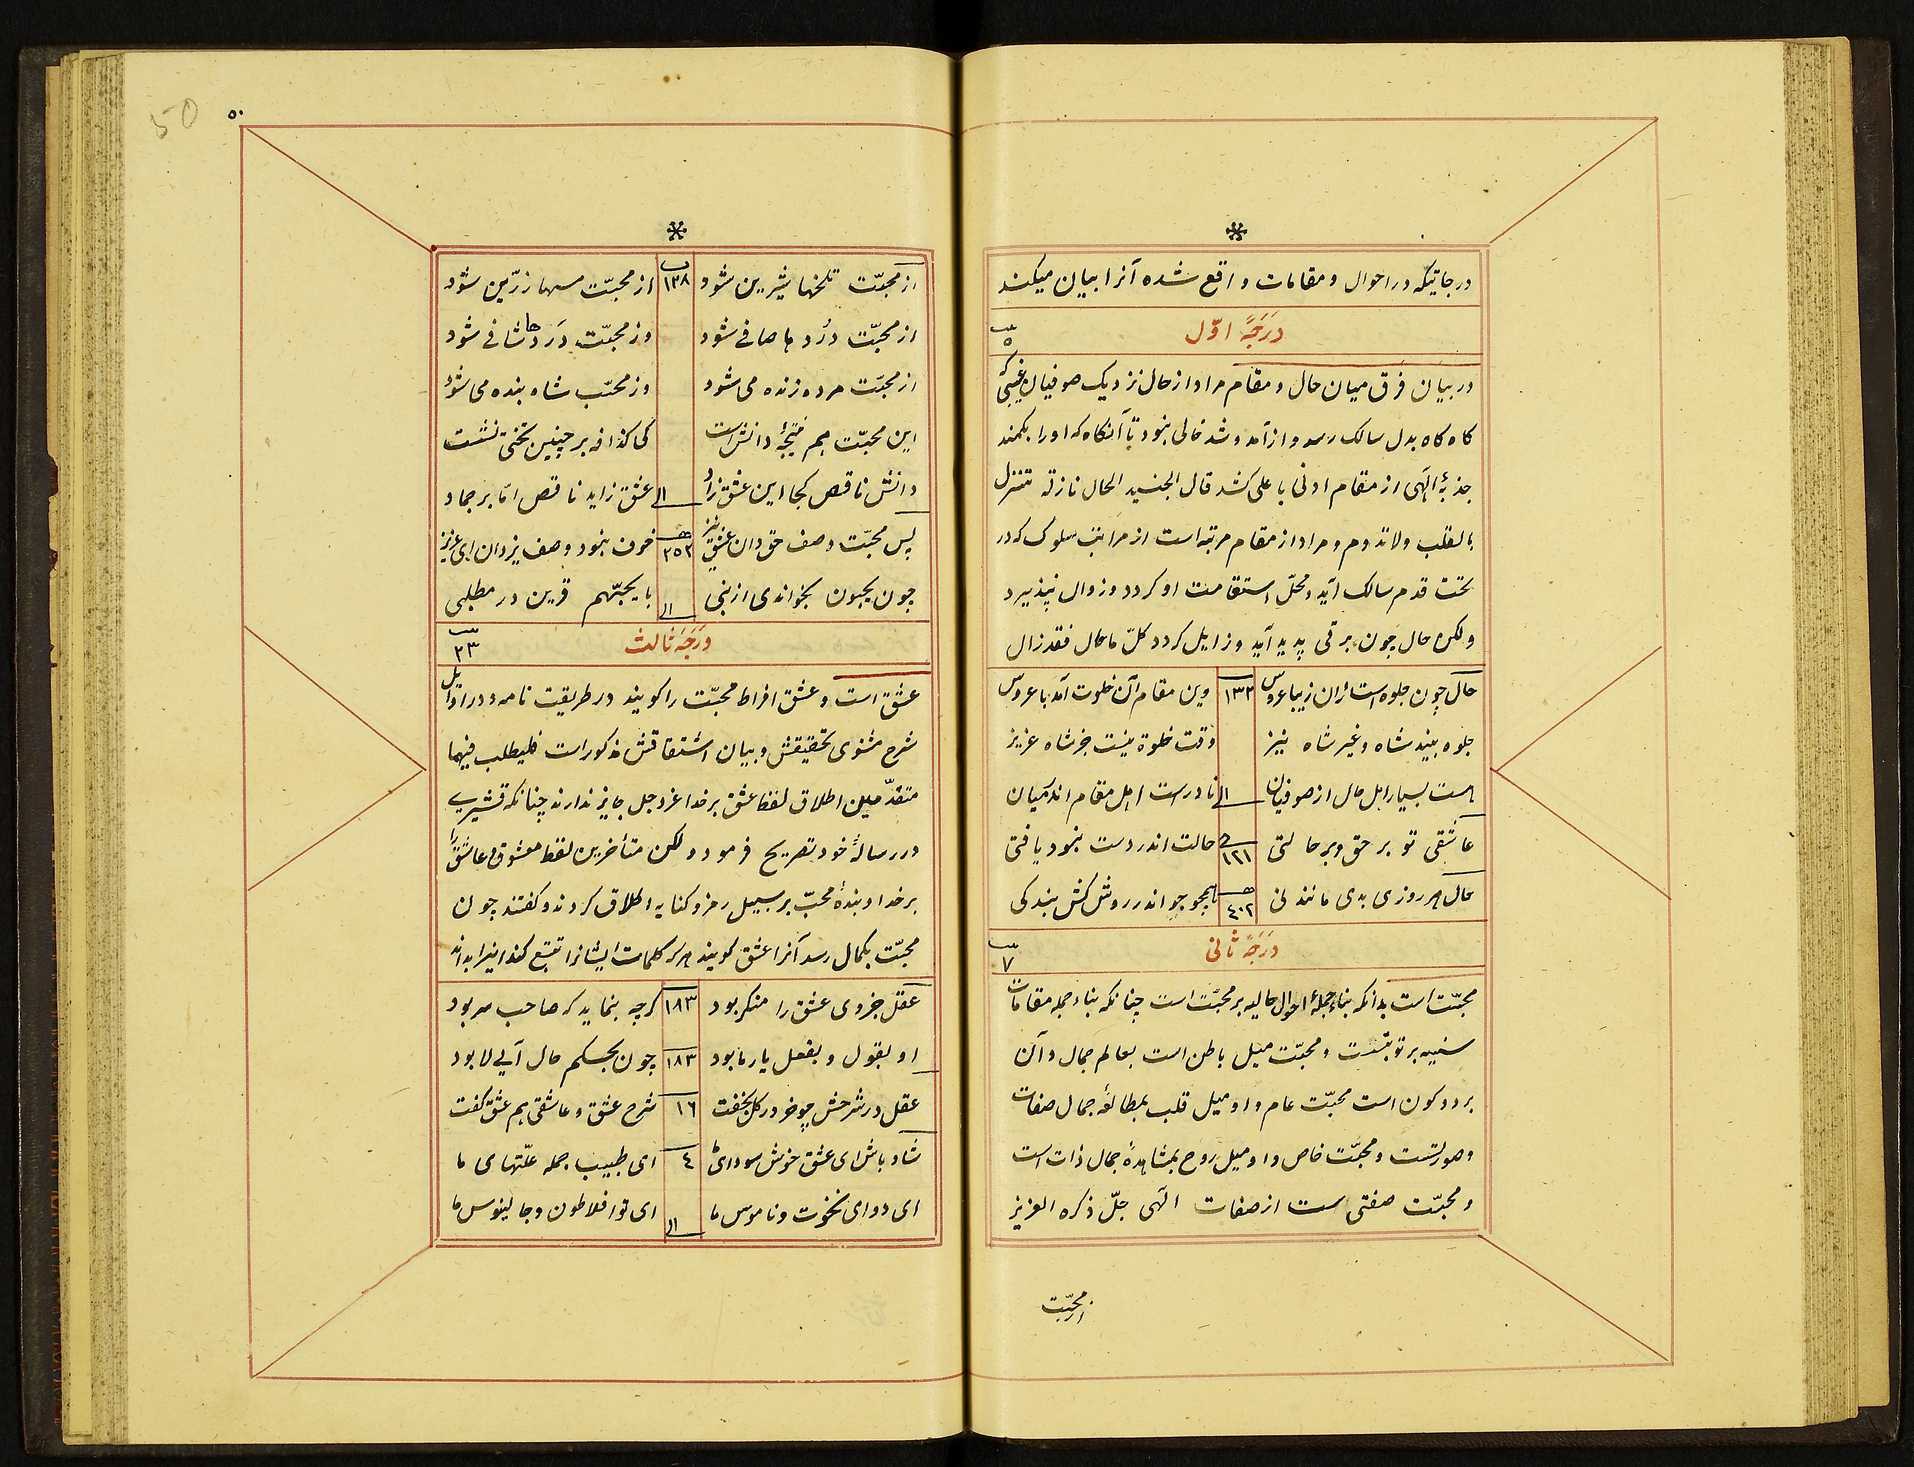 درجاتیکه در احوال و مقامات واقع شده آنرا بیان میکند
درجهٔ اوّل
٥
در بیان فرق میان حال و مقام مراد از حال نزدیک صوفیان غیبی که
کاه کاه بدل سالک رسد و از آمد و شد خالی نبود تا آنکاه که اورا بکمند
جذبهٔ الهی از مقام ادنی باعلی کشد قال الجنید الحال نازلة تتنزل
بالقلب ولاتدوم و مراد از مقام مرتبه است از مراتب سلوک که در
تحت قدم سالک آید و محلّ استقامت او کردد و زوال نپذیرد
ولکن حال چون برقی پدید آید و زایل کردد کلّ ما حال فقد زال
حال چون جلوه است زان زیبا عروس ١٣٢ وین مقام آن خلوت آمد با عروس
جلوه بیند شاه و غیر شاه نیز وقت خلوة نیست جز شاه عزیز
هست بسیار اهل حال از صوفیان الی نادرست اهل مقام اندر میان
عاشقی تو بر حق و بر حالتی ١٢١ حالت اندر دست نبود یا فتی
حال هر روزی بدی مانند نی ٤٠٢ همچو جو اندر روش کش بند کی
درجهٔ ثانی
٧
محبّت است بدانکه بناء جملهٔ احوال حالیه بر محبّت است چنانکه بناء جمله مقامات
سنیه بر توبتست و محبّت میل باطن است بعالم جمال و آن
بر دو کون است محبّت عام و او میل قلب بمطالعهٔ جمال صفات
و صورتست و محبّت خاص و او میل روح بمشاهدهٔ جمال ذات است
و محبّت صفتی است از صفات الهی جلّ ذکره العزیز
از محبّت
٥٠
50
از محبّت تلخها شیرین شود ١٣٨ از محبّت مسها زرّین شود
از محبّت دُرد ها صافی شود وز محبّت دَردها شافی شود
از محبّت مرده زنده می شود وز محبّت شاه بنده می شود
این محبّت هم نتیجهٔ دانش است کی کذافه بر چنین تختی نشست
دانش ناقص کجا این عشق زاد الی عشق زاید ناقص امّا بر جماد
پس محبّت وصف حق دان عشق نیز ٢٥٢ خوف نبود وصف یزدان ای عزیز
چون یحبون بخواندی از نبی الی با یحبّهم قرین در مطلبی
درجهٔ ثالث
٢٣
عشق است و عشق افراط محبّت را کویند در طریقت نامه و در اوایل
شرح مثنوی تحقیقش و بیان اشتقاقش مذکور است فلیطلب فیهما
متقدّمین اطلاق لفظ عشق بر خدا عزوجل جایز ندارند چنانکه قشیری
در رسالهٔ خود تصریح فرموده لکن متأخرین لفظ معشوق و عاشق را
بر خدا و بندهٔ محبّ بر سبیل رمز و کنایه اطلاق کردند و کفتند چون
محبّت بکمال رسد آنرا عشق کویند هر که کلمات ایشانرا تتبع کند اینرا بداند
عقل جزوی عشق را منکر بود ١٩٣ کرچه بنماید که صاحب سر بود
او بقول و بفعل یار ما بود ١٨٣ چون بحکم حال آیی لا بود
عقل در شرحش چو خر در کل بخفت ١٦ شرح عشق و عاشقی هم عشق کفت
شاد باش ای عشق خوش سودای ما ٤ ای طبیب جمله علّتهای ما
ای دوای نخوت و ناموس ما الی ای تو افلاطون و جالینوس ما